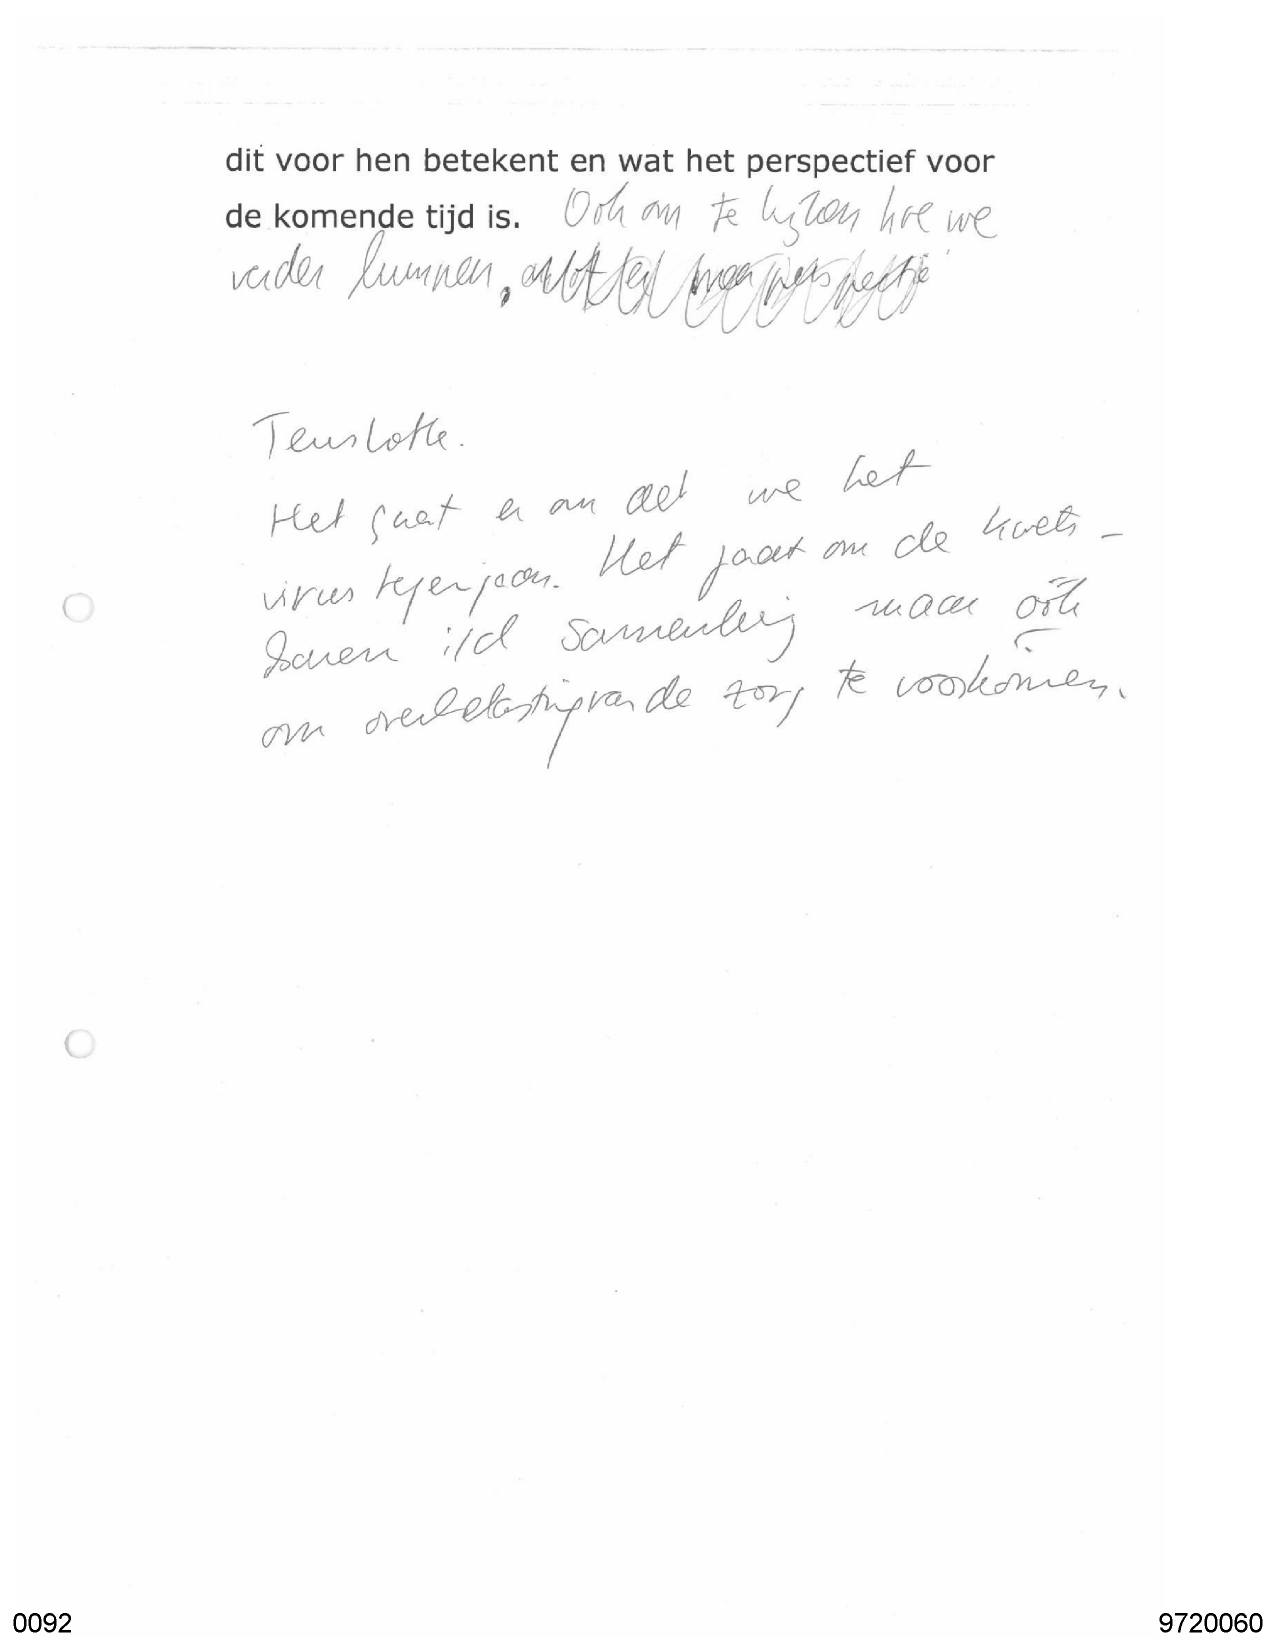 dit voor hen betekent en wat het perspectief voor
de komende tijd is. Ook om te kijken hoe we
verder kunnen, meer perspectie
Tenslotte.
Het gaat er om dat we het
virus tegengaan. Het gaat om de kwets-
baren i/d samenleving maar óók
om overbelasting van de zorg te voorkomen.
0092
9720060